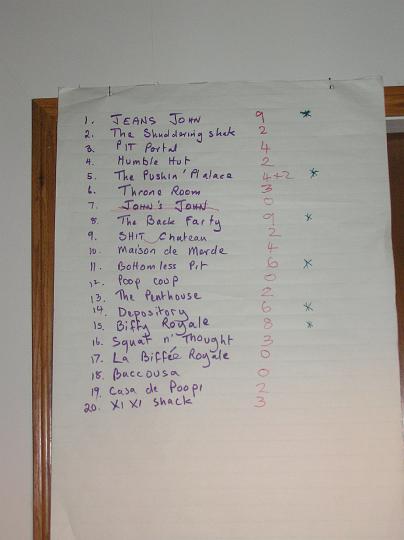 1. JEANS JOHN 9 *
2. The Shuddering shek 2
3. PIT Portal 4
4. Humble Hut 2
5. The Pushin' Palace 4+2 *
6. Throne Room 3
7. JOHN'S JOHN 0
8. The Back Farty 9 *
9. SHIT Chateau 2
10. Maison de Merde 4
11. Bottomless Pit 6 *
12. Poop coup 0
13. The Penthouse 2
14. Depository 6 *
15. Biffy Royale 8 *
16. Squat n' Thought 3
17. La Biffée Royale 0
18. Baccousa 0
19. Casa de Poopi 2
20. XI XI shack 3